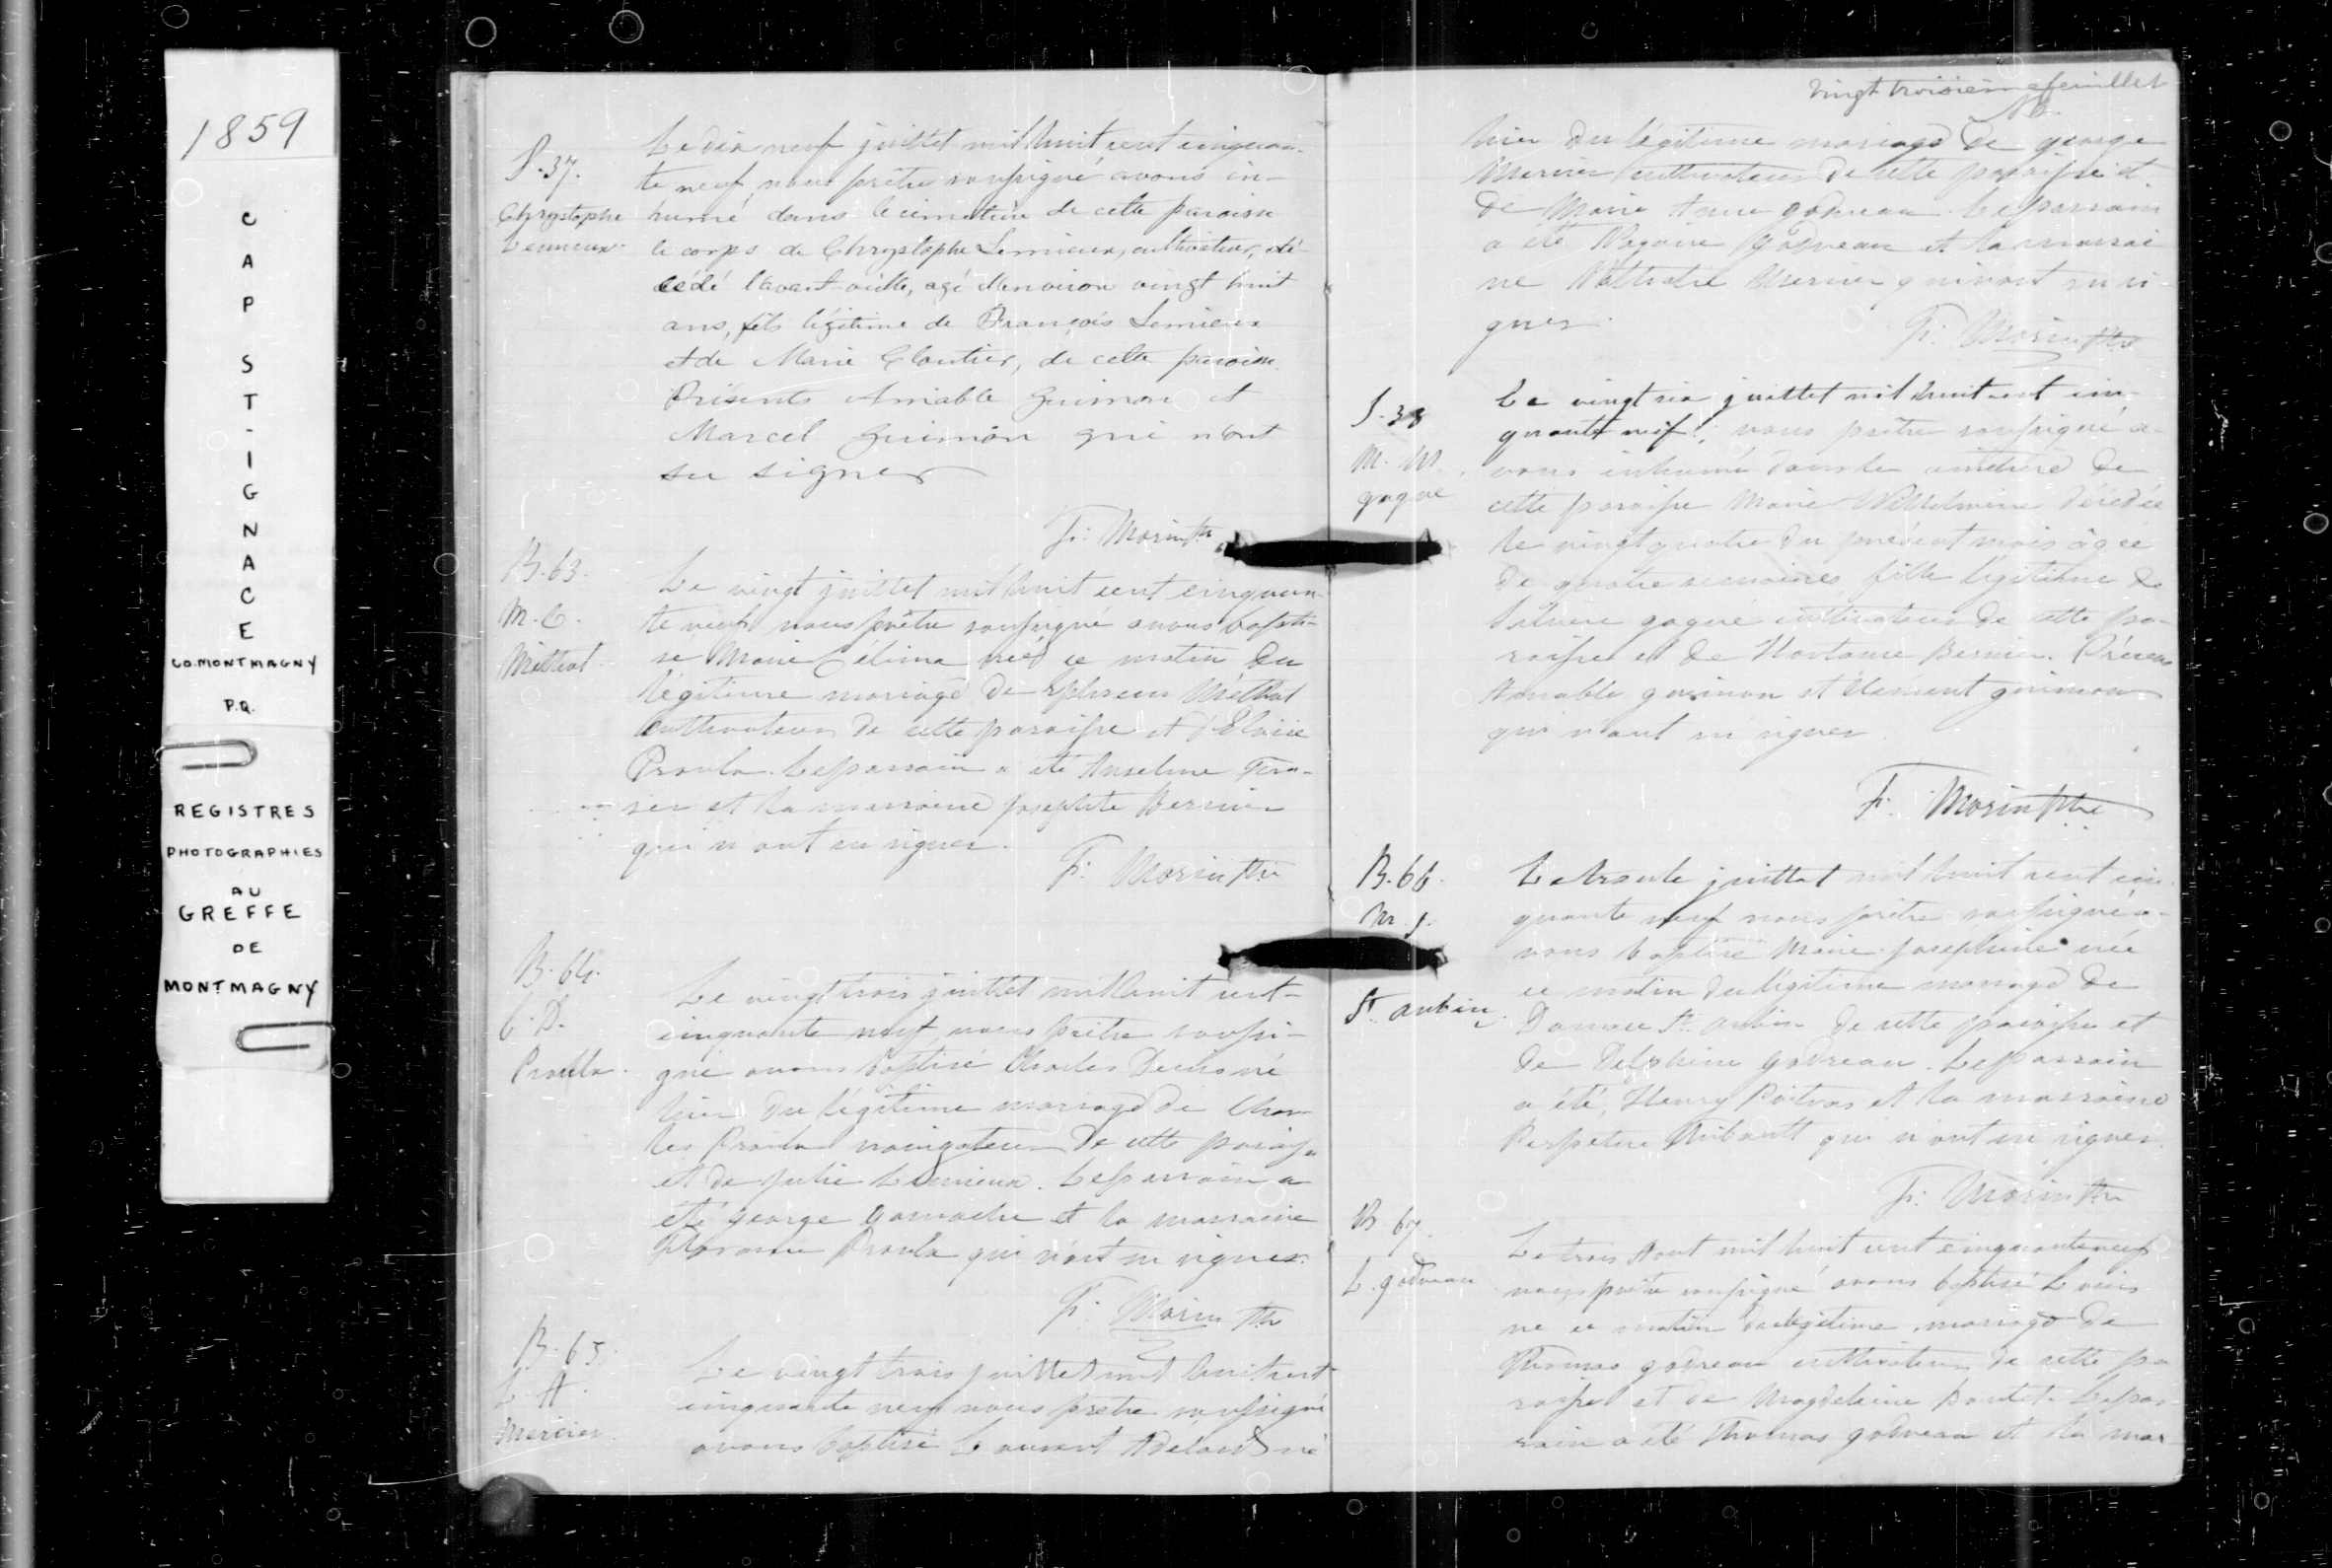 1859
CAP ST-IGNACE
CO. MONTMAGNY
P.Q.
REGISTRES
PHOTOGRAPHIES
AU
GREFFE
DE
MONTMAGNY
S. 37.
Chrystophe
Lemieux
Le dix neuf juillet mil huit cent cinquan-
te neuf nous prêtre soussigné avons in-
humé dans le cimetière de cette paroisse
le corps de Chrystophe Lemieux, cultivateur, dé-
cédé l'avant-veille, agé d'environ vingt huit
ans, fils légitime de François Lemieux
et de Marie Cloutier, de cette paroisse.
Présents Amable Guimon et
Marcel Guimon qui n'ont
su signer
F: Morin Ptre
B. 63.
M. C.
Méthot
Le vingt juillet mil huit cent cinquan-
te neuf nous prêtre soussigné avons bapti-
sé Marie Célina née ce matin du
légitime mariage de Méthot
cultivateur de cette paroisse et d'Eloise
Proulx. Le parrain a été Anselme
et la marraine Josephte Bernier
qui n'ont su signer.
F: Morin Ptre
B. 64.
C. D.
Proulx.
Le vingt trois juillet mil huit cent
cinquante neuf, nous prêtre soussi-
gné avons baptisé Charles né
hier du légitime mariage de Char
les Proulx navigateur de cette paroisse
et de Julie Lemieux. Le parrain a
été George Gamache et la marraine
Proulx qui n'ont su signer.
F: Morin Ptre
B. 65.
L. A.
Mercier.
Le vingt trois juillet mil huit cent
cinquante neuf nous prêtre soussigné
avons baptisé Laurent Adélard né
vingt troisième feuillet
hier du légitime mariage de George
Mercier cultivateur de cette paroisse et
de Marie Anne Godreau. Le parrain
a été Godreau et la marrai
ne Mercier qui n'ont su si
gner.
F: Morin Ptre
S. 38
M. W.
gagné
Le vingt six juillet mil huit cent cin-
quante neuf, nous prêtre soussigné a-
vons inhumé dans le cimetière de
cette paroisse Marie Wilhelmine décédée
le vingt quatre du présent mois âgée
de quatre semaines, fille légitime de
gagné cultivateur de cette pa-
roisse et de Hortense Bernier. Présens
Amable guimon et Clement guimon
qui n'ont su signer.
F: Morin Ptre
B. 66.
M. J.
St. Aubin
Le trente juillet mil huit cent cin-
quante neuf nous prêtre soussigné a-
vons baptisé Marie Josephine née
ce matin du légitime mariage de
St. Aubin de cette paroisse et
de Delphine Godreau. Le parrain
a été, Henry Poitras et la marraine
Perpetue Thibault qui n'ont su signer.
F: Morin Ptre
B. 67.
L. godreau
Le trois Aout mil huit cent cinquante neuf
nous prêtre soussigné avons baptisé Louis
né ce matin du légitime mariage de
Thomas godreau cultivateur de cette pa
roisse et de Magdeleine. Le par
rain a été Thomas godreau et la mar